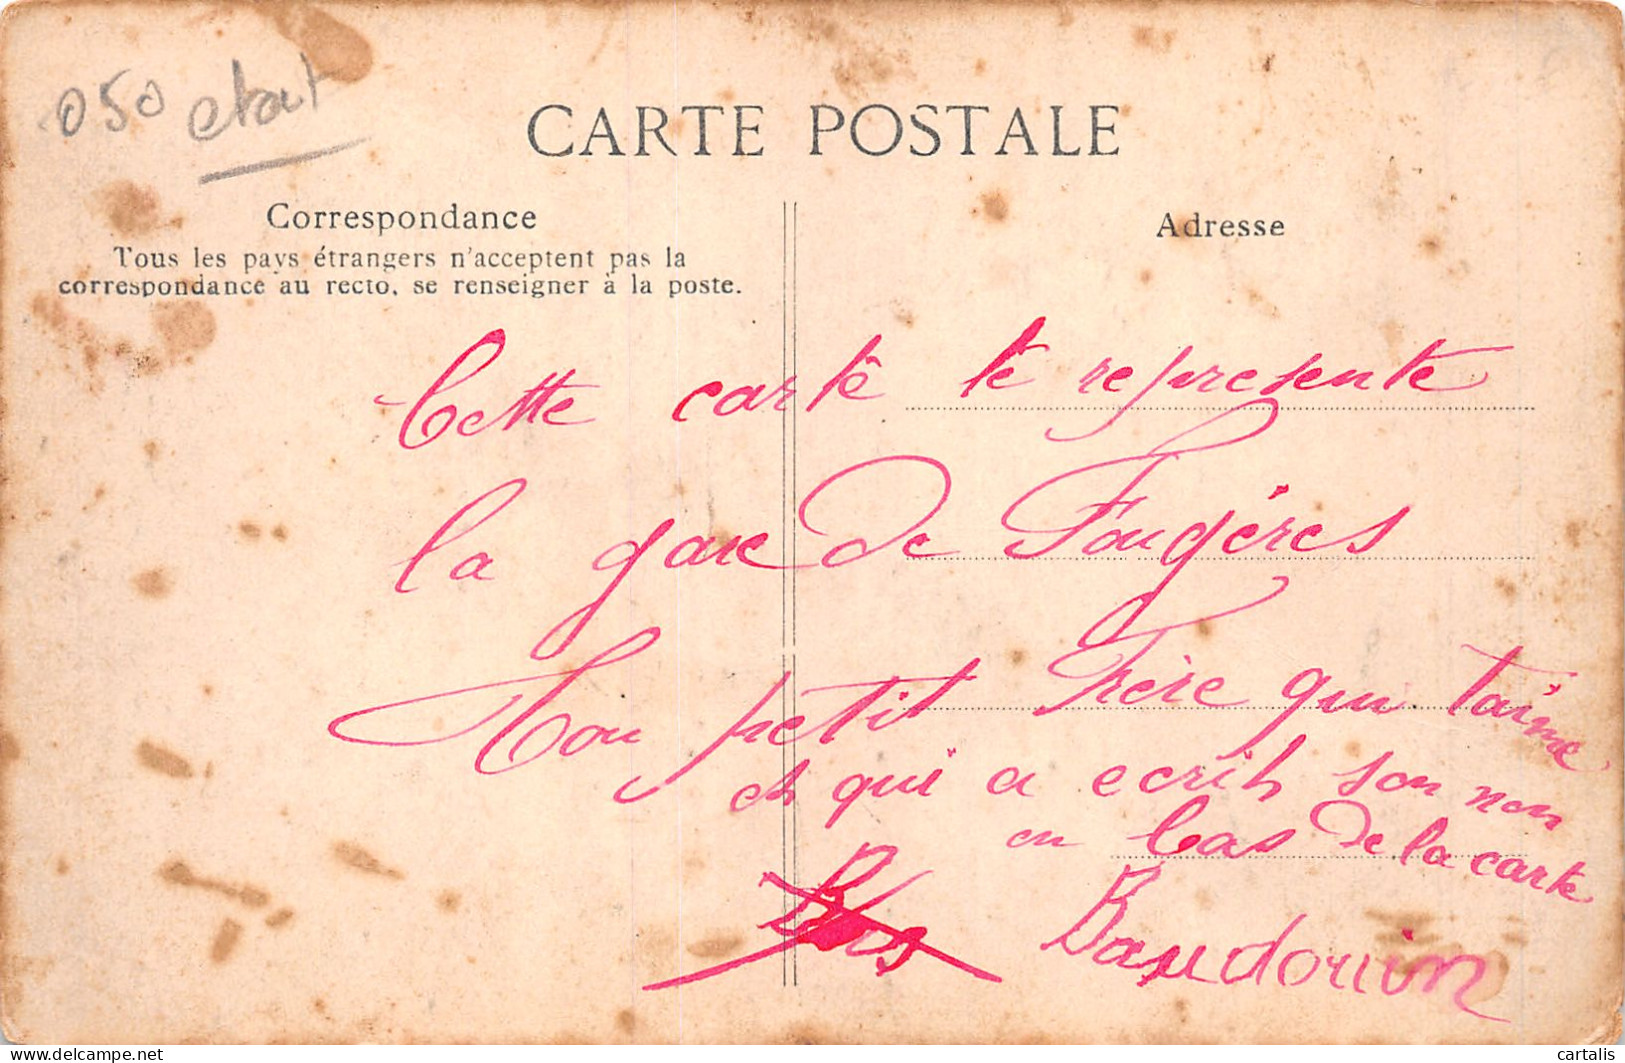 050 etat
CARTE POSTALE
Correspondance
Tous les pays étrangers n'acceptent pas la
correspondance au recto, se renseigner à la poste.
Adresse
Cette carte te represente
la gare de Fougéres
Ton petit Frère qui t'aime
et qui a ecrit son nom
en bas de la carte
Baudouin
www.delcampe.net
cartalis